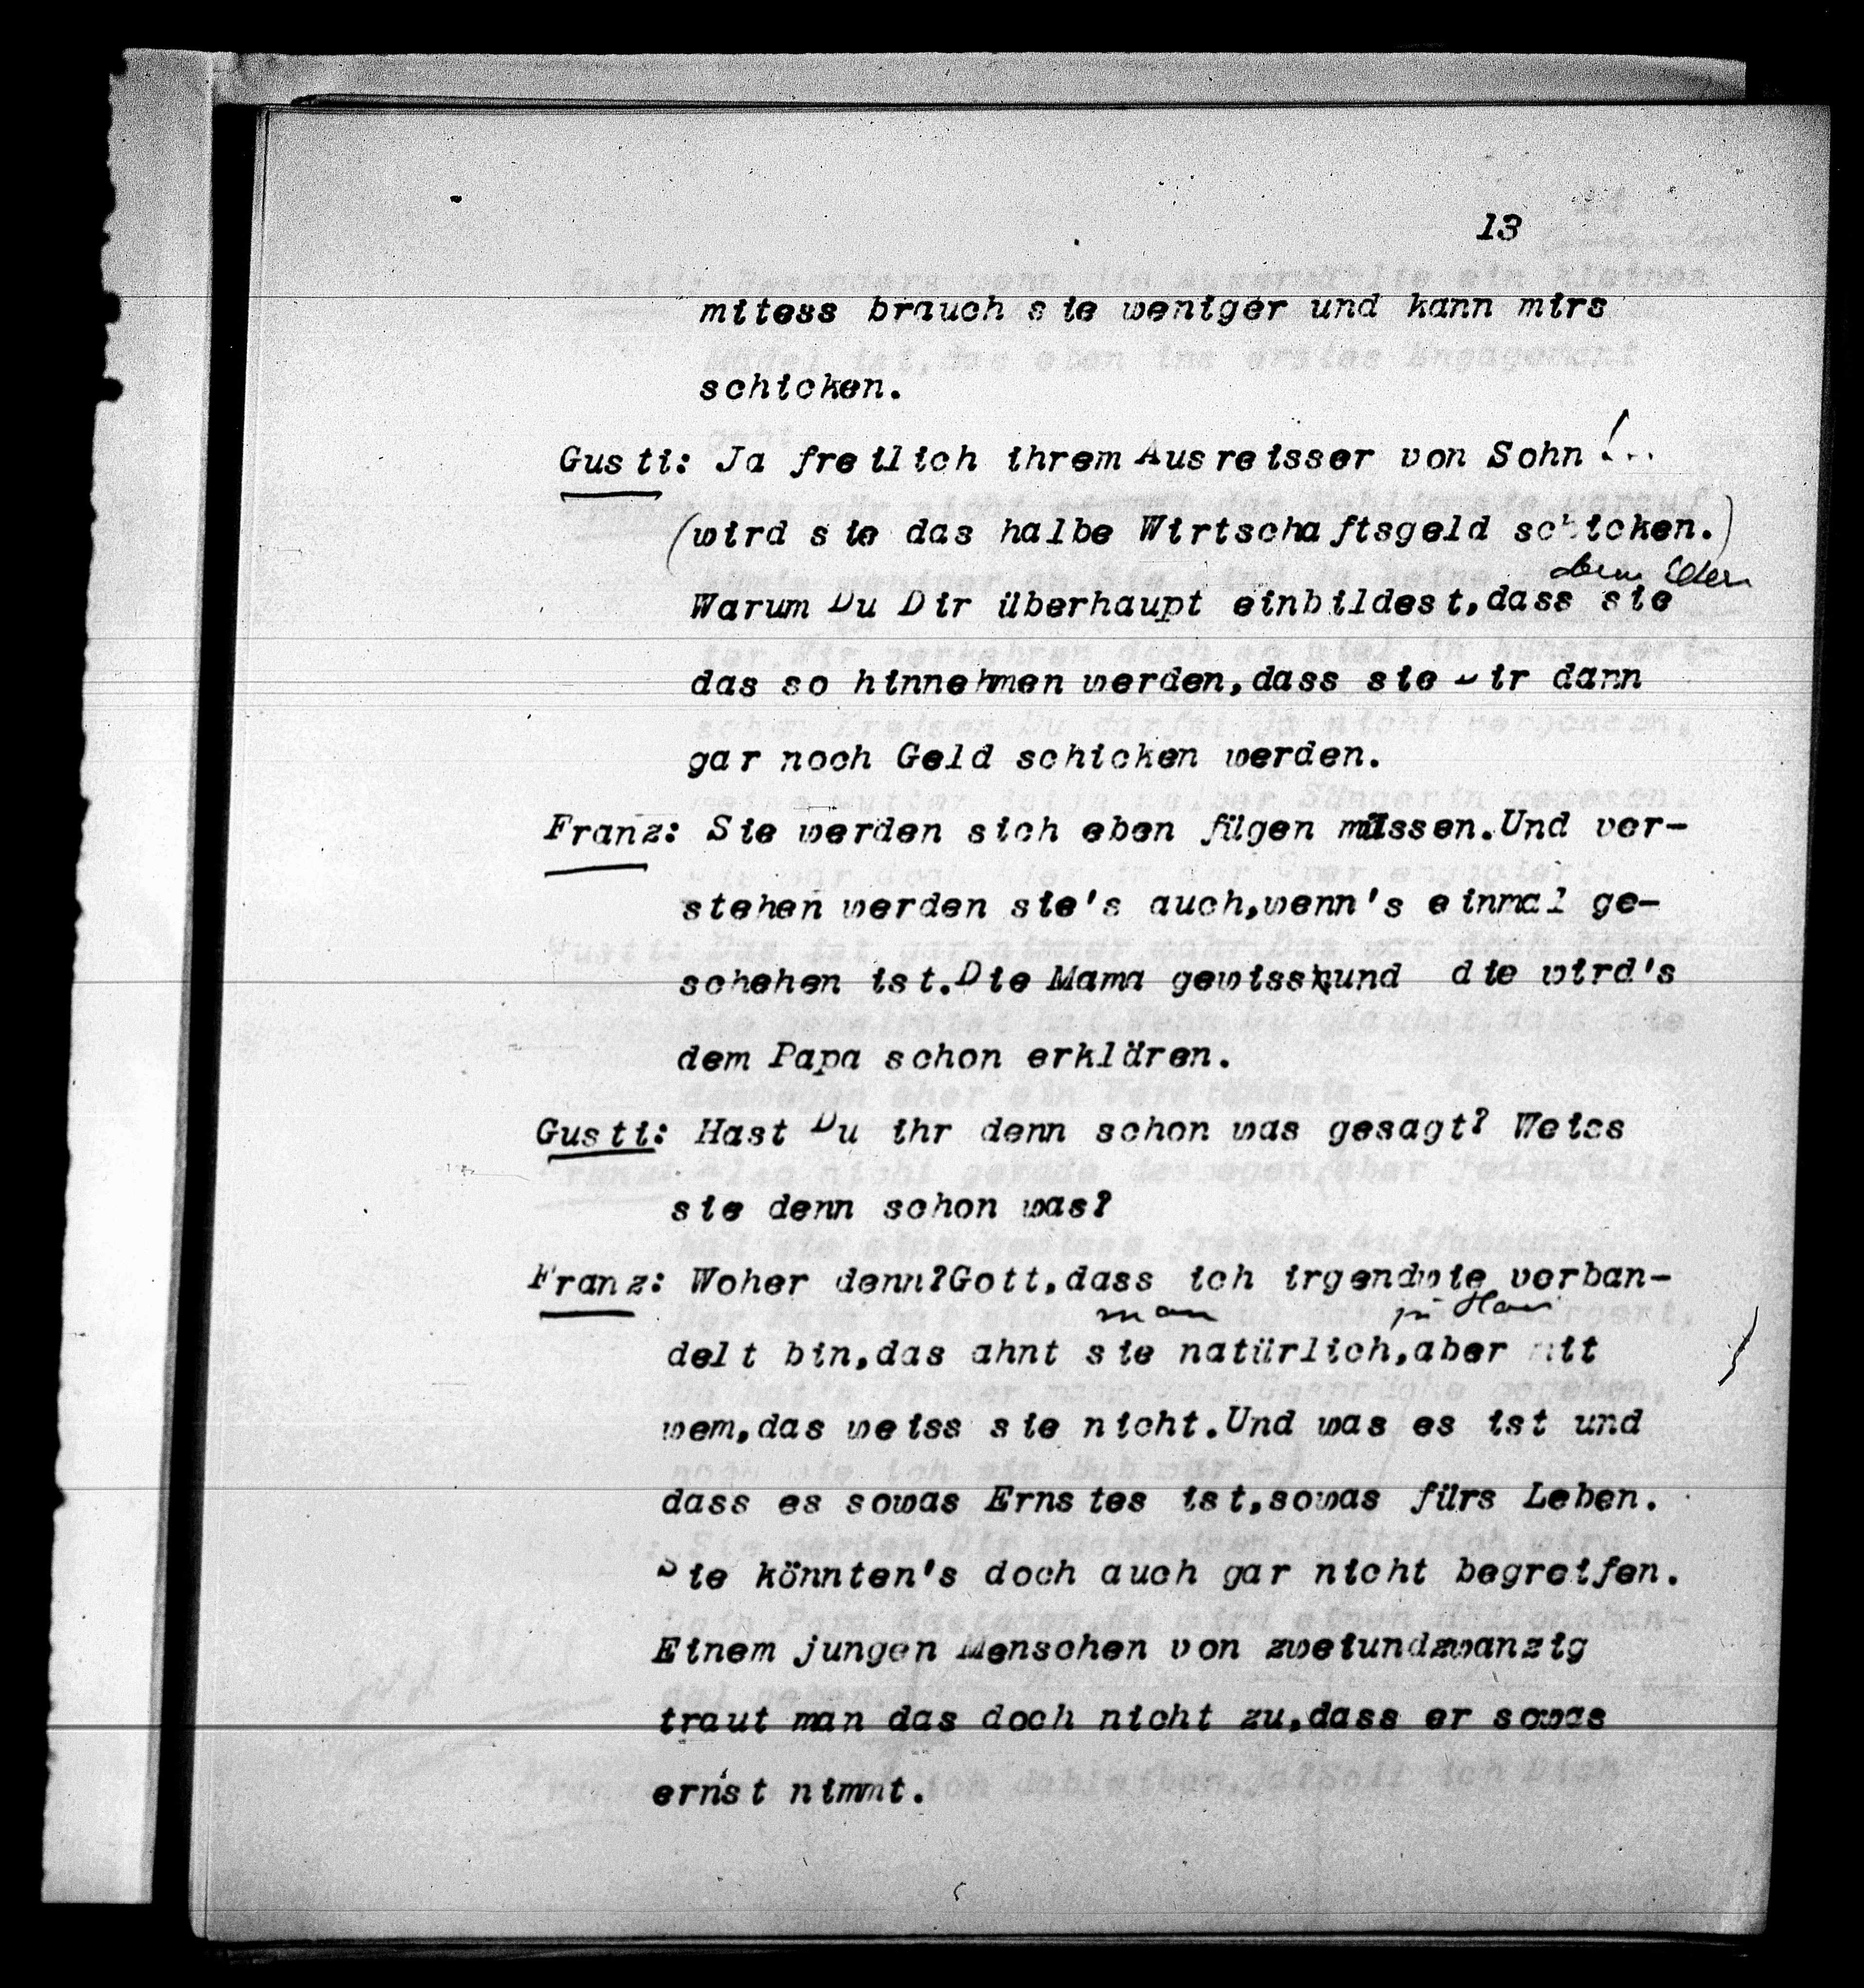 13
mitess brauch sie weniger und kann mirs
schicken.
Gusti: Ja freilich ihrem Ausreisser von Sohn!..
(wird sie das halbe Wirtschaftsgeld schicken.)
Warum Du Dir überhaupt einbildest,dass sie
das so hinnehmen werden,dass sie Dir dann
gar noch Geld schicken werden.
Franz: Sie werden sich eben fügen müssen.Und ver-
stehen werden sie's auch,wenn's einmal ge-
schehen ist.Die Mama gewiss und die wird's
dem Papa schon erklären.
Gusti: Hast Du ihr denn schon was gesagt? Weiss
sie denn schon was?
Franz: Woher denn?Gott,dass ich irgendwie verban-
man zu Haus
delt bin,das ahnt sie natürlich,aber mit
wem,das weiss sie nicht.Und was es ist und
dass es sowas Ernstes ist,sowas fürs Leben.
Sie könnten's doch auch gar nicht begreifen.
Einem jungen Menschen von zweiundzwanzig
traut man das doch nicht zu,dass er sowas
ernst nimmt.